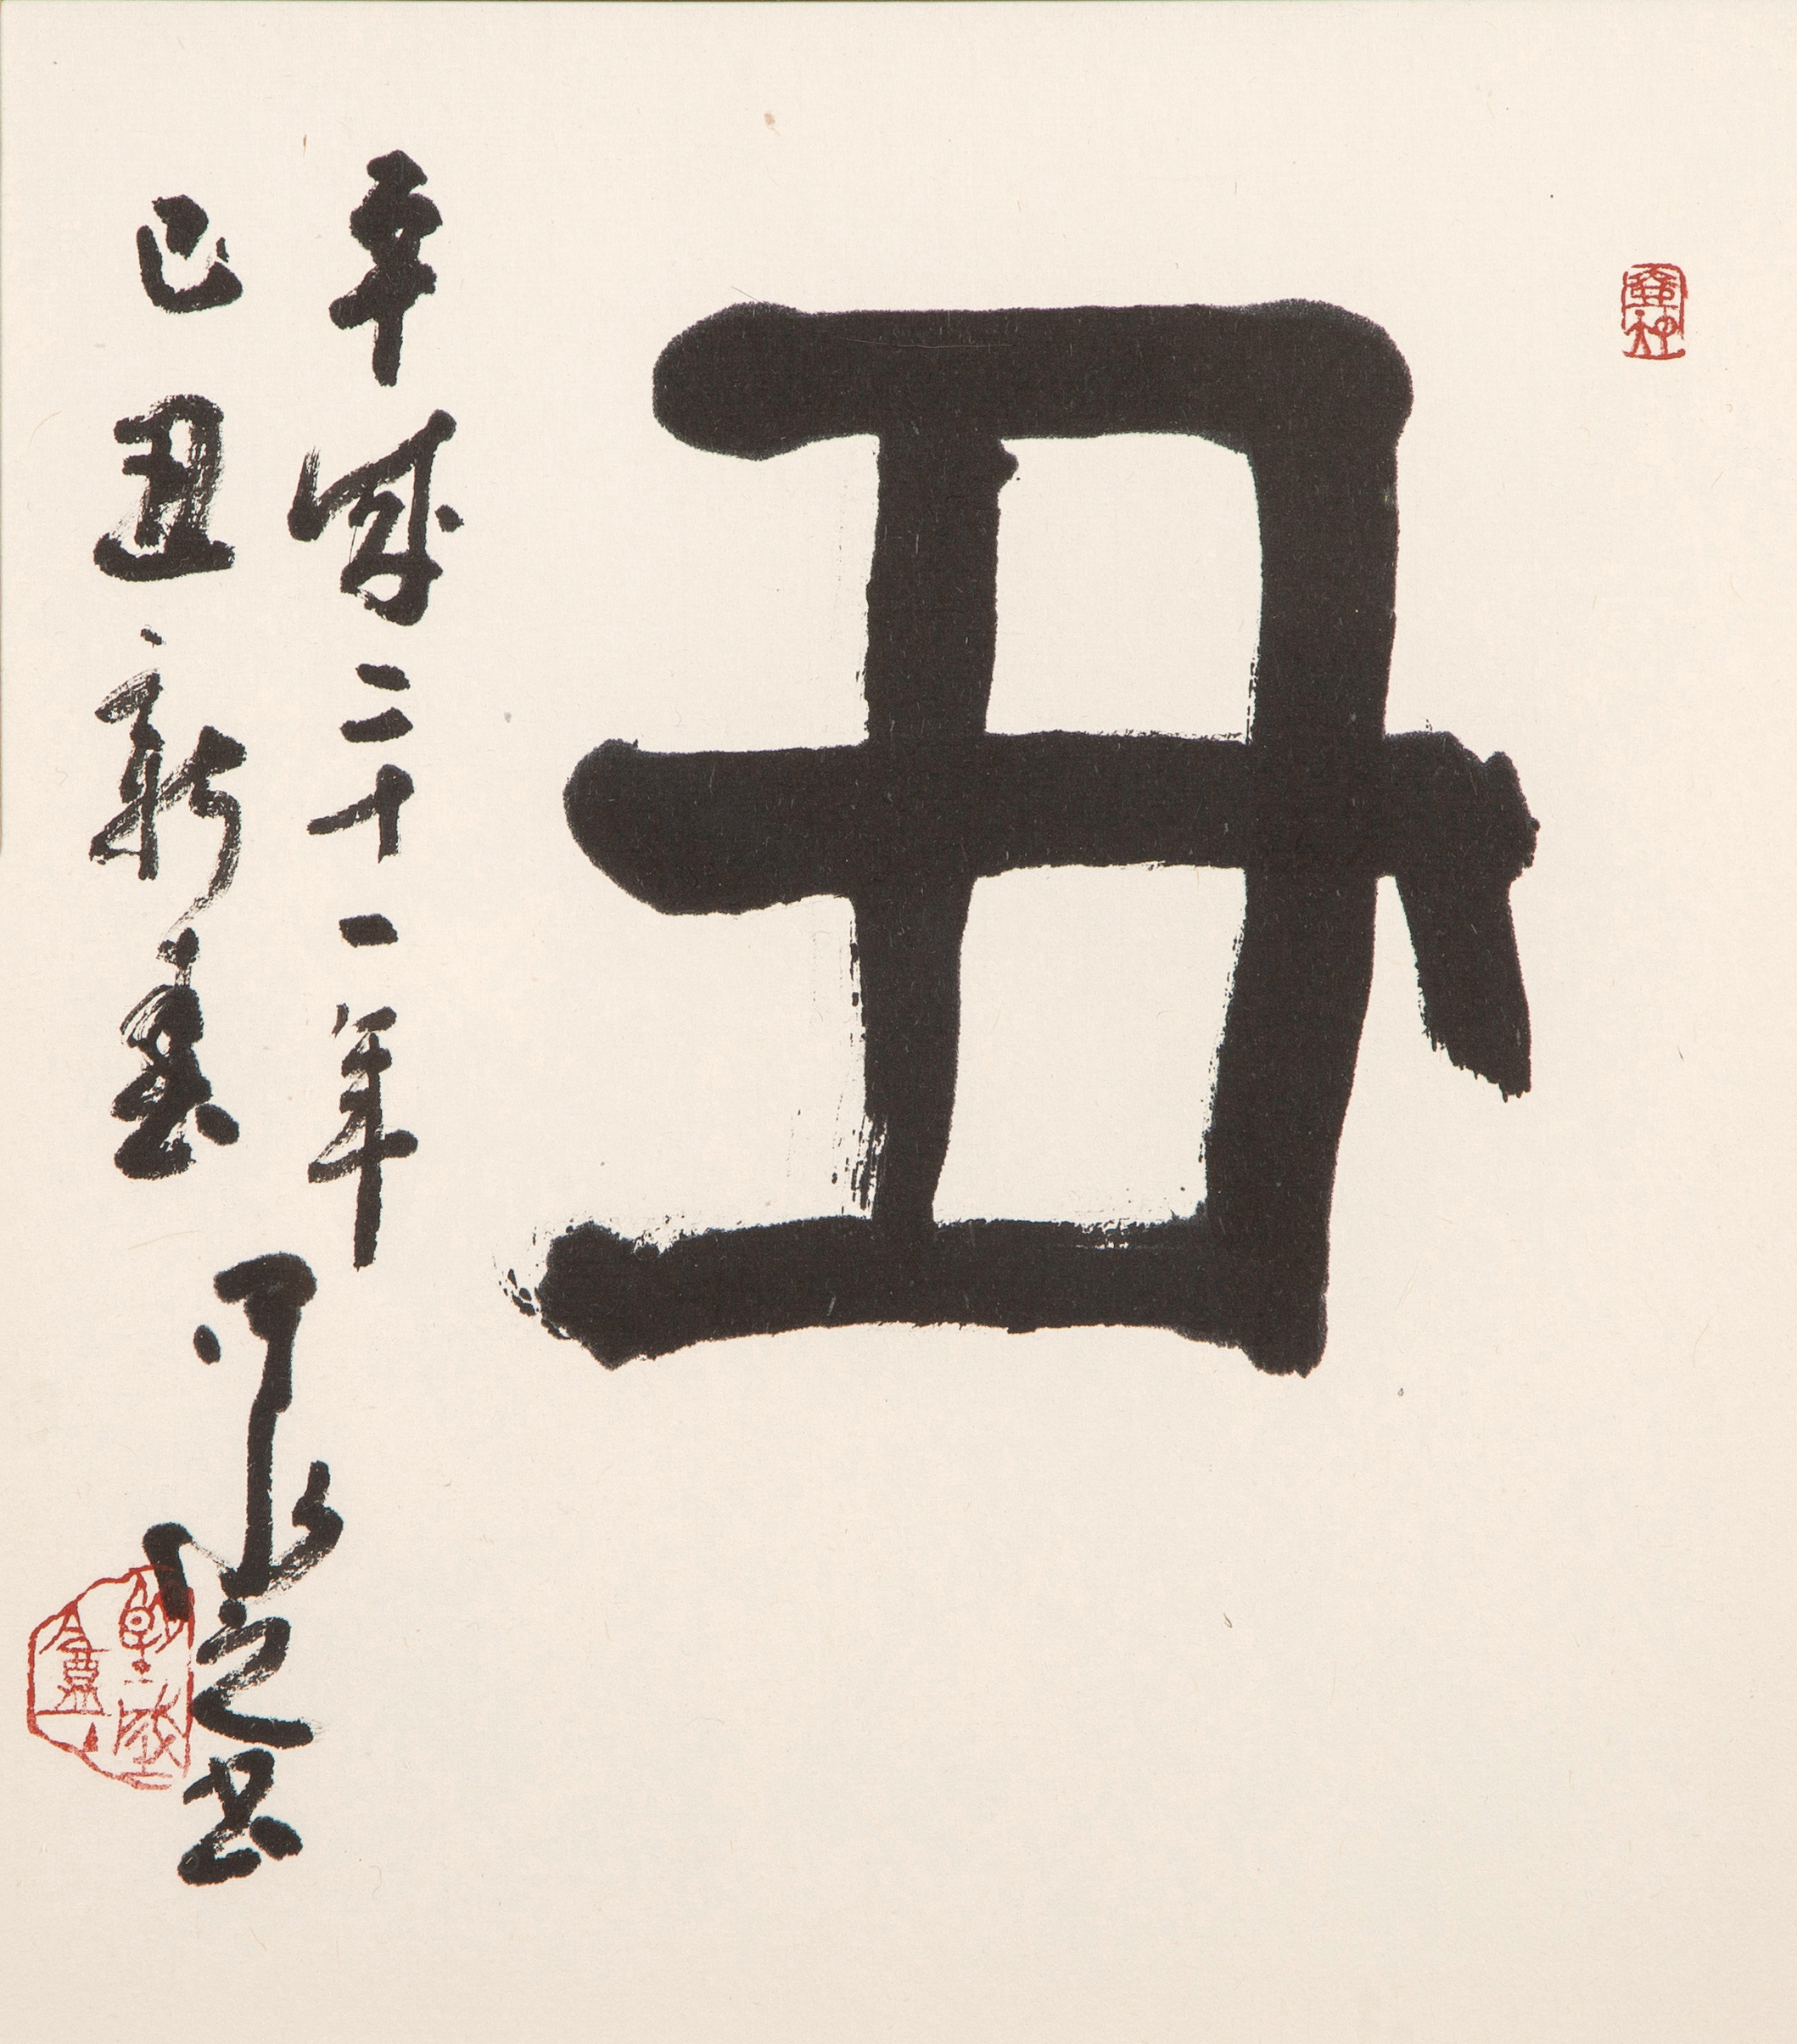 丑
平成二十一年
己丑新春
之書